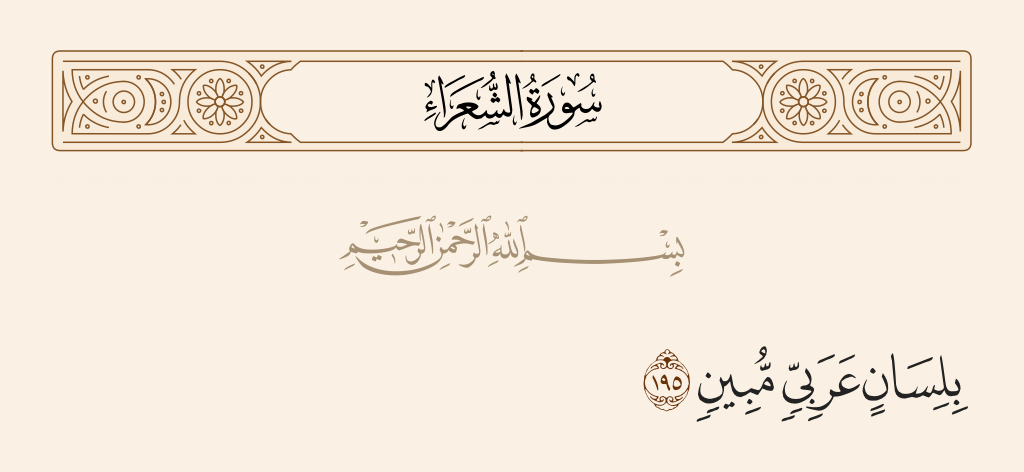 سُورَةُ الشُّعَرَاءِ
بِسْمِ ٱللَّهِ ٱلرَّحْمَٰنِ ٱلرَّحِيمِ
بِلِسَانٍ عَرَبِيٍّ مُّبِينٍ ١٩٥